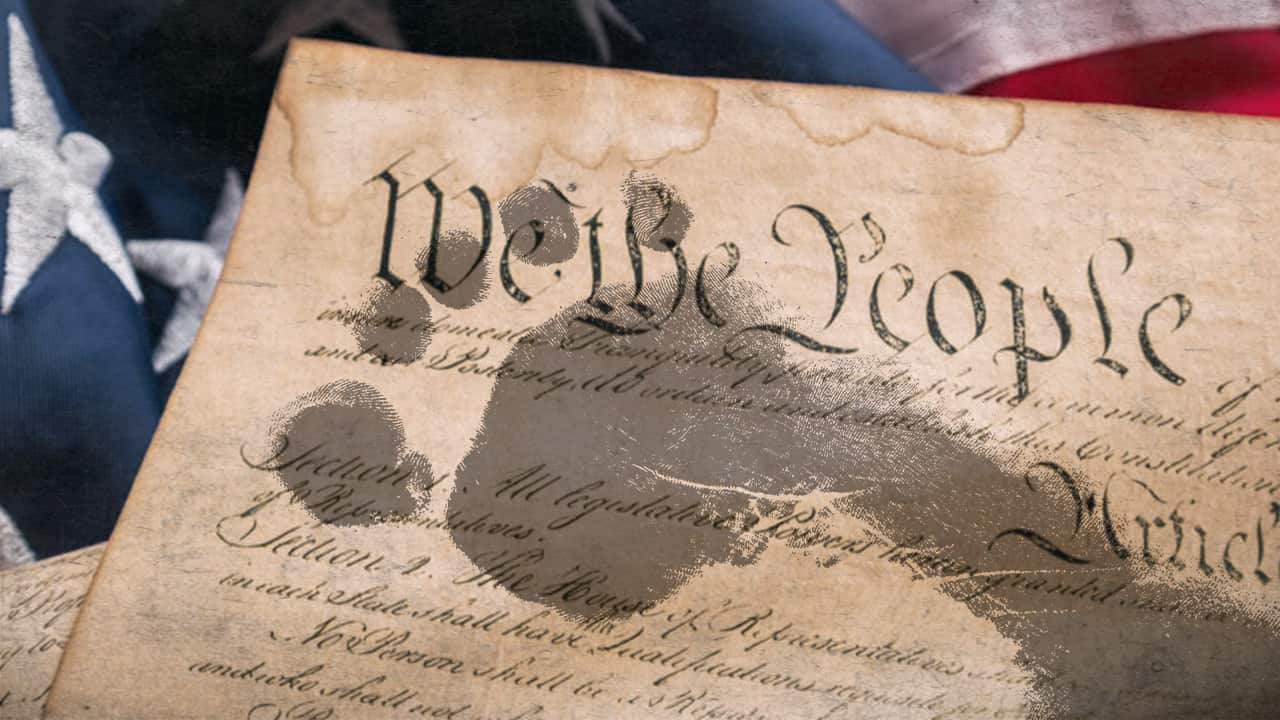 We the People of
insure domestic Tranquility, provide for the common
and our Posterity, do ordain and establish this Constitution
Article
Section 1. All legislative Powers herein granted
of Representatives.
Section 2. The House of Representatives
in each State shall have Qualifications requisite for
No Person shall be a Repre
and who shall not